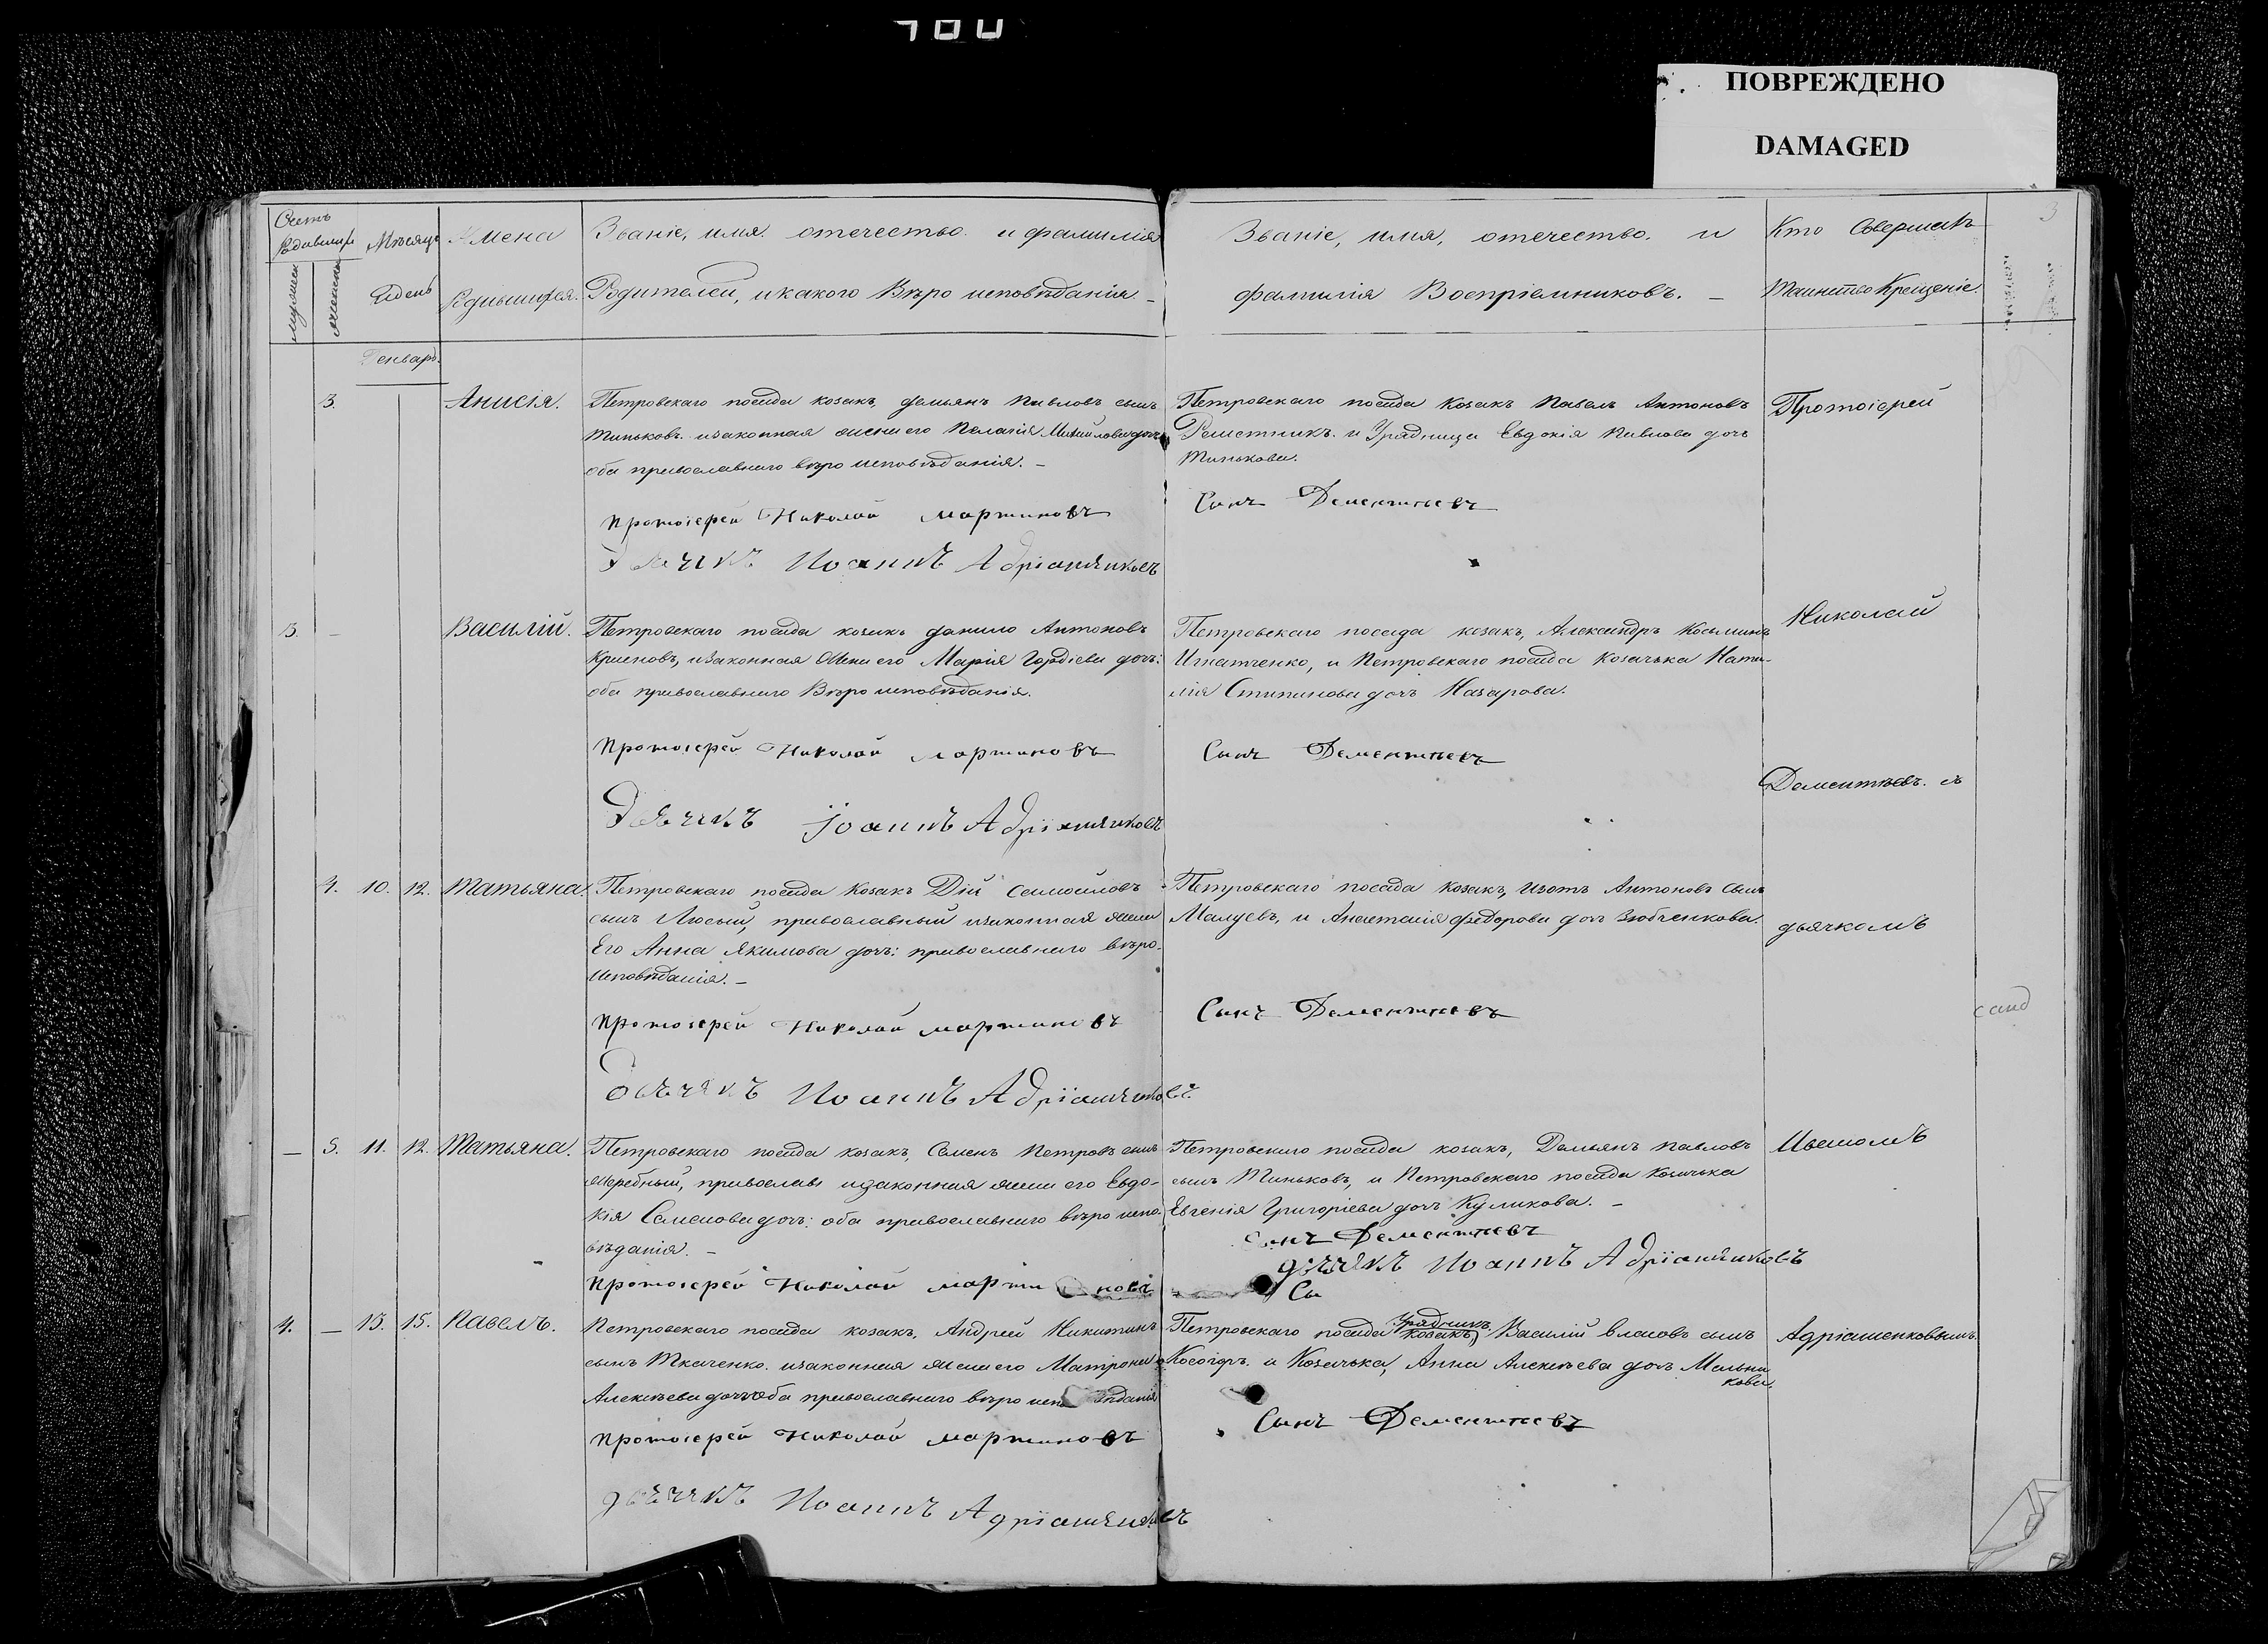 ПОВРЕЖДЕНО
DAMAGED
3
Счетъ
Мѣсяцъ
Имена
Званіе, имя. отечество. и фамилія
Званіе, имя, отечество. и
Кто Совершалъ
идень
Родителей, икакого Вѣро исповѣданія. –
фамилія Воспріемниковъ. –
Таинство Крещеніе.
Генваръ.
3. Анисія.
Петровскаго посада козакъ, Демьянъ Павловъ сынъ
Миньковъ. изаконная жена его Пелагія Михайлова дочь
оба православнаго вѣро исповѣданія. –
Протоіерей Николай Мартиновъ
Іоаннъ
Петровскаго посада Козакъ Павелъ Антоновъ
Решетникъ. и Урядница Евдокія Павлова дочь
Минькова.
Сынъ Дементьевъ
Протоіерей
3. – Василій.
Петровскаго посада козакъ Данило Антоновъ
изаконная Жена его Марія Гордіева дочь:
оба православнаго Вѣро исповѣданія.
Протоіерей Николай Мартиновъ
Іоаннъ
Петровскаго посада козакъ, Александръ Косьминъ
Игнатченко, и Петровскаго посада козачька Ната-
лія Стипанова дочь Назарова.
Сынъ Дементьевъ
Николай
Дементьевъ. съ
4. 10. 12. Татьяна.
Петровскаго посада Козакъ Дій Самойловъ
сынъ православный изаконная жена
Его Анна Якимова дочь: православнаго вѣро-
исповѣданія. –
Протоіерей Николай Мартиновъ
Іоаннъ
Петровскаго посада Козакъ, Изотъ Антоновъ сынъ
и Анастасія Федорова дочь Зюбченкова.
Сынъ Дементьевъ
дьячкомъ
– 5. 11. 12. Татьяна.
Петровскаго посада козакъ, Семенъ Петровъ сынъ
Жеребный, православ изаконная жена его Евдо-
кія Семенова дочь: оба православнаго вѣро испо-
вѣданія. –
Протоіерей Николай Марти новъ
Петровскаго посада козакъ, Демьянъ Павловъ
сынъ Миньковъ, и Петровскаго посада Козачька
Евгенія Григоріева дочь Куликова. –
Сынъ Дементьевъ
Іоаннъ
Сы
4. – 13. 15. Павелъ.
Петровскаго посада козакъ, Андрей Никитинъ
сынъ Ткаченко. изаконная жена его Матрона
Алексѣева дочь оба православнаго вѣро
Протоіерей Николай Мартиновъ
Іоаннъ
Урядникъ
Петровскаго посада козакъ, Василій Власовъ сынъ
Косогоръ. и Козачька, Анна Алексѣева дочь Мальни
кова.
Сынъ Дементьевъ
Адріашенковымъ.